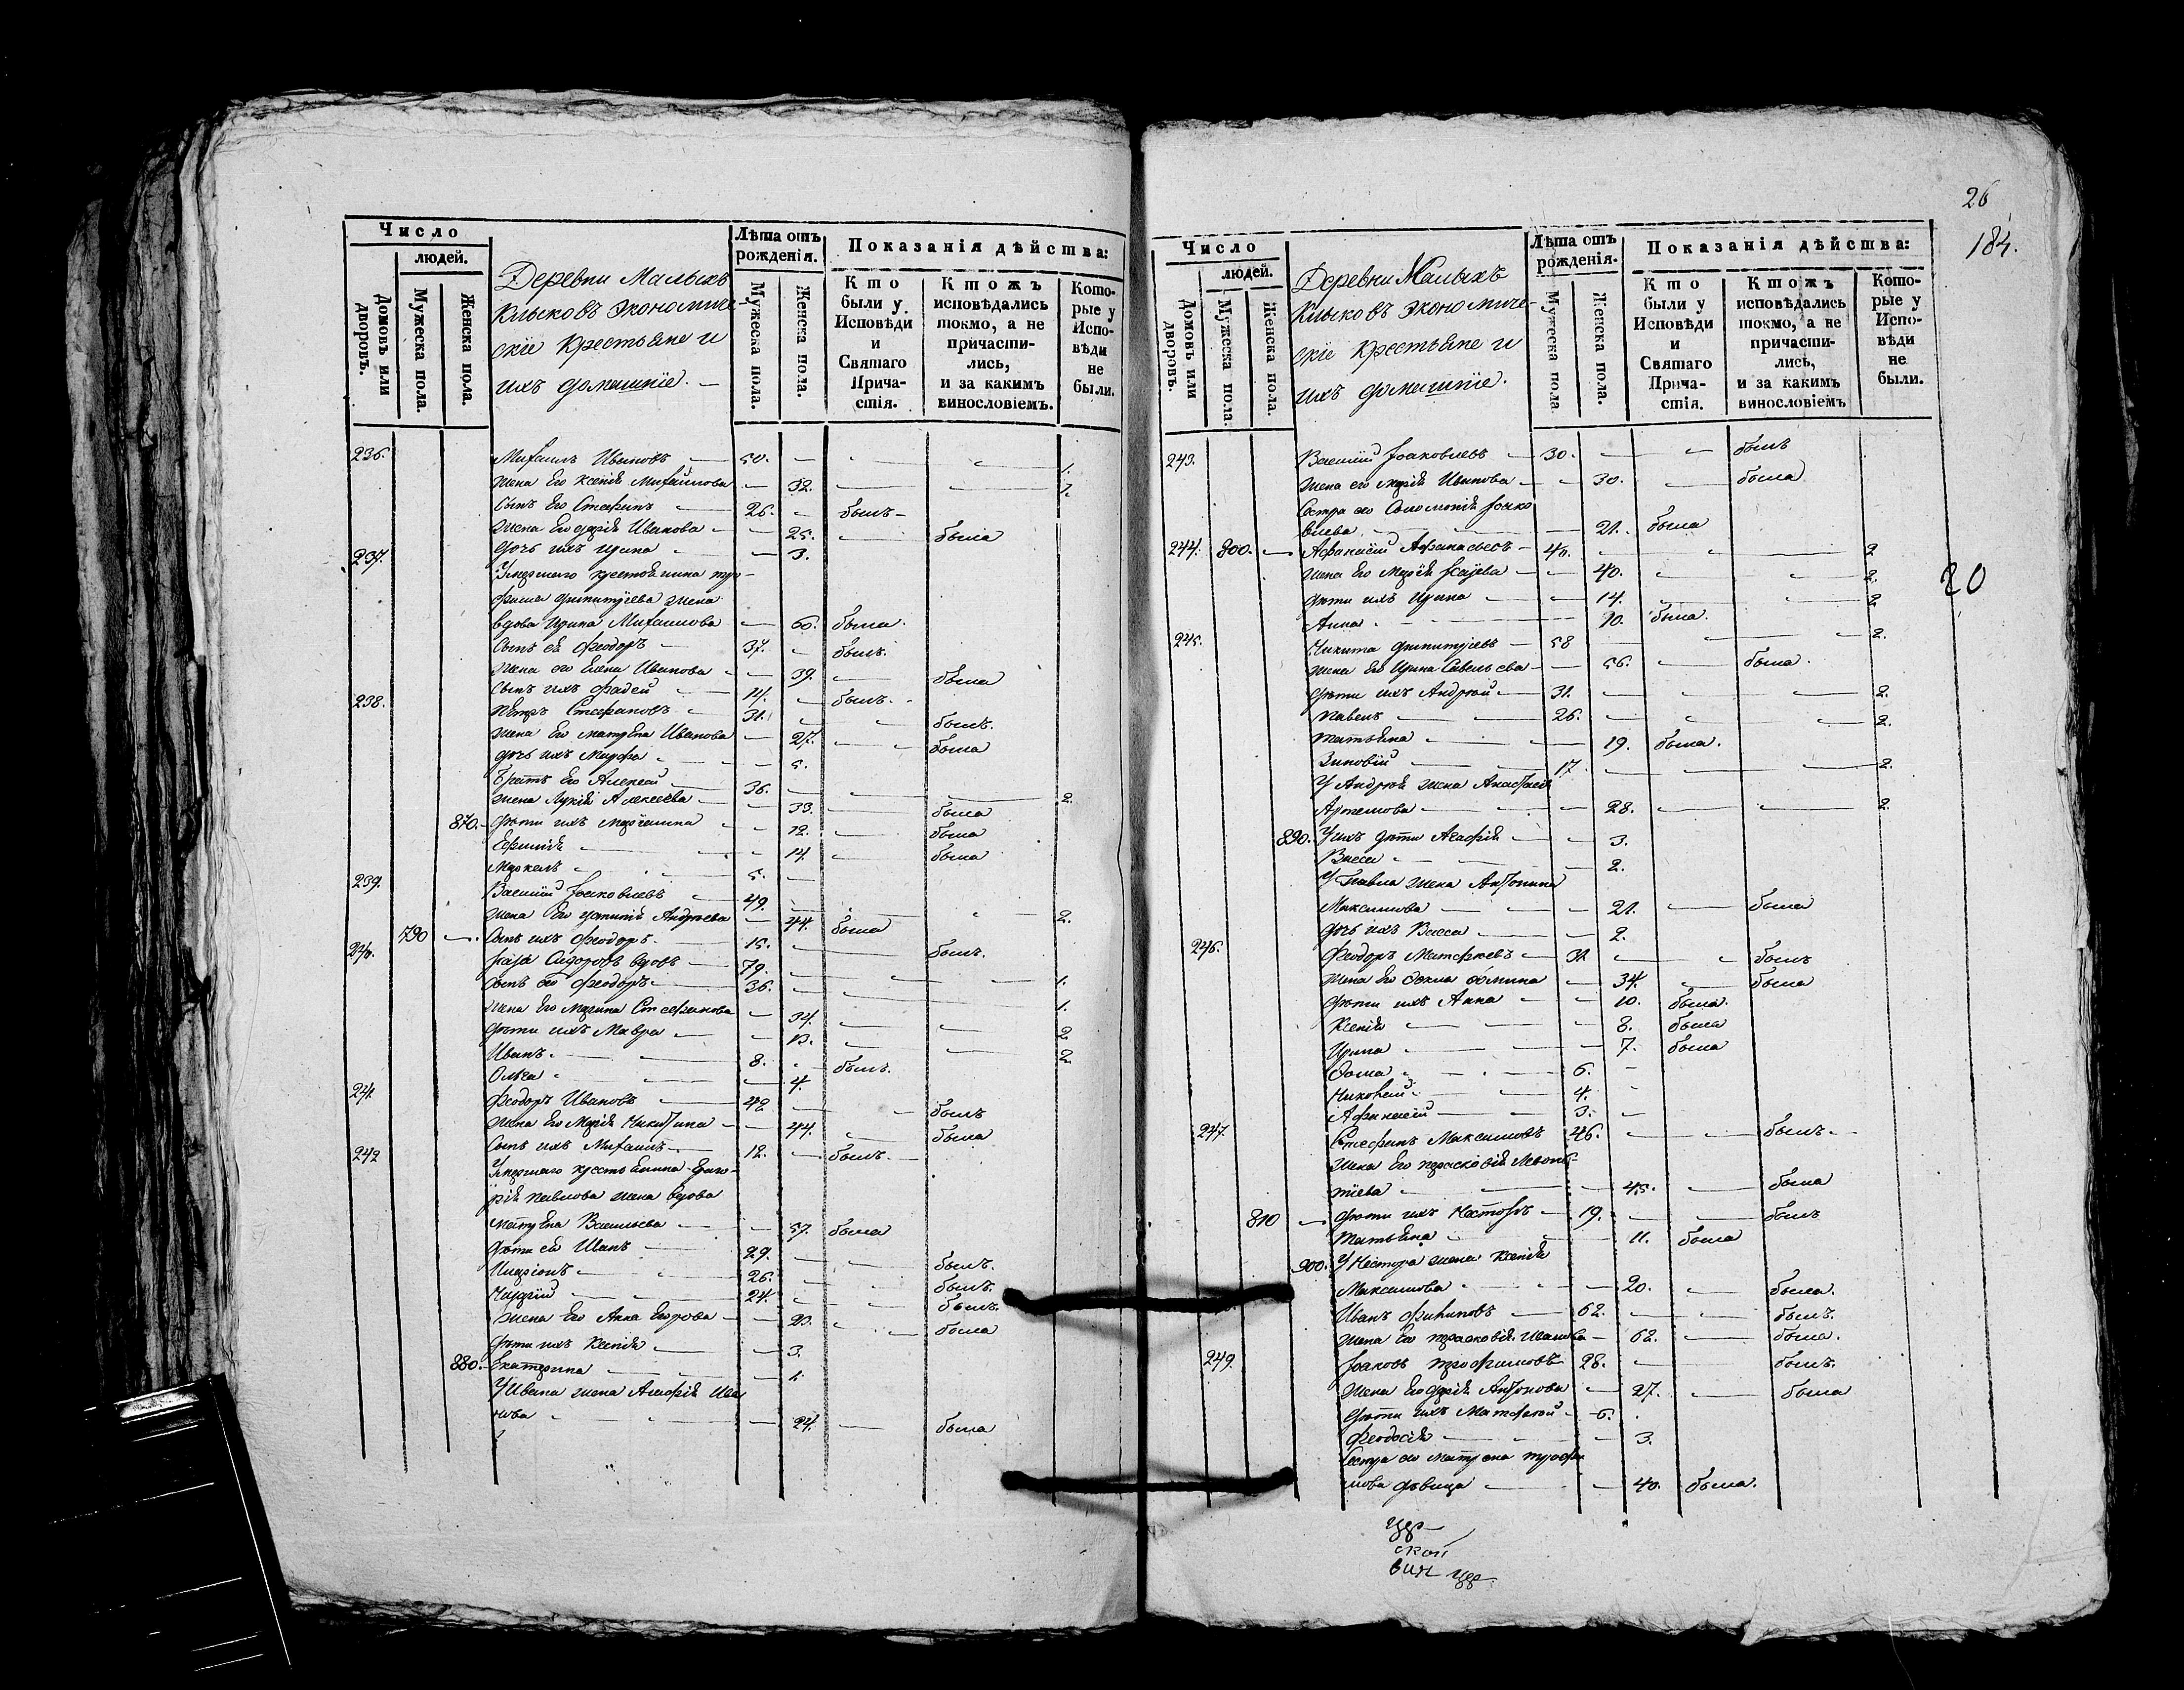 Число
людей.
Домовъ или дворовъ.
Мужеска пола.
Женска пола.
Деревни Малыхъ
Клыковъ экономиче-
скіе крестьяне и
ихъ домашніе.
Лѣта отъ рожденія.
Мужеска пола.
Женска пола.
Показанія дѣйства:
Кто были у Исповѣди и Святаго Прича-стія.
Ктожъ исповѣдались токмо, а не причасти-лись, и за какимъ винословіемъ.
Кото-рые у Испо-вѣди не были.
236. Михаилъ Ивановъ — 50. — — — 1.
жена Его Ксенія Михайлова — 32. — — 1.
Сынъ Его Стефанъ — 26. — былъ —
жена Его Дарія Иванова — 25. — была
дочь ихъ Ирина — 3.
237. Умершаго крестьянина тро-
фима жена
вдова Ирина Михаилова — 60. была.
Сынъ ея Феодоръ — 37. — былъ.
жена его Елена Иванова — 39. — была
Сынъ ихъ Фадей — 11. — былъ. -
238. Петръ Стефановъ — 31. — — былъ.
жена Его матрена Иванова — 27. — была
дочь ихъ Марфа — 5.
Братъ Его Алексей — 36. — — — 2.
жена Лукія Алексеева — 33. — была
870. — дѣти ихъ — 12. — была
Евфимія — 14. — была
Маркелъ — 5. —
239. Василій Іаковлевъ — 49. — — — 2.
жена Его Андреева — 44. была
790 — Сынъ ихъ Феодоръ. — 15. — былъ.
240. Сидоровъ вдовъ — 79. — — — 1.
Сынъ его Феодоръ — 36. — — 1.
жена Его Марина Стефанова — 34. — — 2
дѣти ихъ Мавра — 13. — — 2.
Иванъ. — 8. — былъ.
Ольга — 4.
241. Феодоръ Ивановъ — 42. — — былъ
жена Его Марія Никитина — 44. — была
Сынъ ихъ Михаилъ — 12. — былъ. —
242 Умершаго крестьянина Григо-
рія Павлова жена вдова
матрена Васильева — 57. была
дѣти ея Иванъ — 29. — былъ.
Иларіонъ — 26. — былъ.
24. — былъ.
жена Его Анна Егорова — 23. — была
дѣти ихъ Ксенія — 3.
880. — Екатерина — 1.
У Ивана жена Агафія Ива
нова — 24. — была
26
184.
Число
людей.
Домовъ или дворовъ.
Мужеска пола.
Женска пола.
Деревни Малыхъ
Клыковъ экономиче-
скіе крестьяне и
ихъ домашніе.
Лѣта отъ рожденія.
Мужеска пола.
Женска пола.
Показанія дѣйства:
Кто были у Исповѣди и Святаго Прича-стія.
Ктожъ исповѣдались токмо, а не причасти-лись, и за какимъ винословіемъ
Кото-рые у Испо-вѣди не были.
243. Василій Іаковлевъ — 30. — — былъ
жена его марія Иванова — 30. — была
Сестра его Соломонія Іако
влева — 21. была
244. 800. — Афанасій Афанасьевъ — 40. — — 2
жена Его Марія — 40. — — 2.
дѣти ихъ Ирина — 14. — — 2
Анна — 10. была.
20
245. Никита — 58 — — 2.
жена Его Ирина Савельева — 56. — была.
дѣти ихъ Андрей — 31. — — 2.
Павелъ — 26. — — 2.
Татьяна — 19. была.
Зиновій — 17 — — 2.
У Андрея жена Анастасія
Артемова — 28. — — 2.
890. У ихъ дѣти Агафія — 3.
Васса — 2.
У Павла жена Антонина
Максимова — 21. — была
дочь ихъ Васса — 2.
246. Феодоръ Матфеевъ — 31. — — былъ
жена Его Фомина — 34. — была
дѣти ихъ Анна — 10. была.
Ксенія — 8. была
Ирина — 7. была
Фома — 6. —
Николай — 4.
Афанасій — 3. —
247. Стефанъ Максимовъ 46. — — былъ —
жена Его парасковія Леонть-
тіева — 45. — была
810 — дѣти ихъ Несторъ — 19. — — былъ
Татьяна — 11. была
900. У Нестора жена Ксенія
Максимова — 20. — была.
Иванъ Филиповъ — 62. — — былъ.
жена Его параскевія Иванова — 62. — была.
249. Іаковъ трофимовъ 28. — былъ.
жена Его Дарія Антонова — 27. — была
дѣти ихъ Матфей — 6.
Феодосія — 3.
Сестра его матрена трофи
мова дѣвица — 40. была.
ской